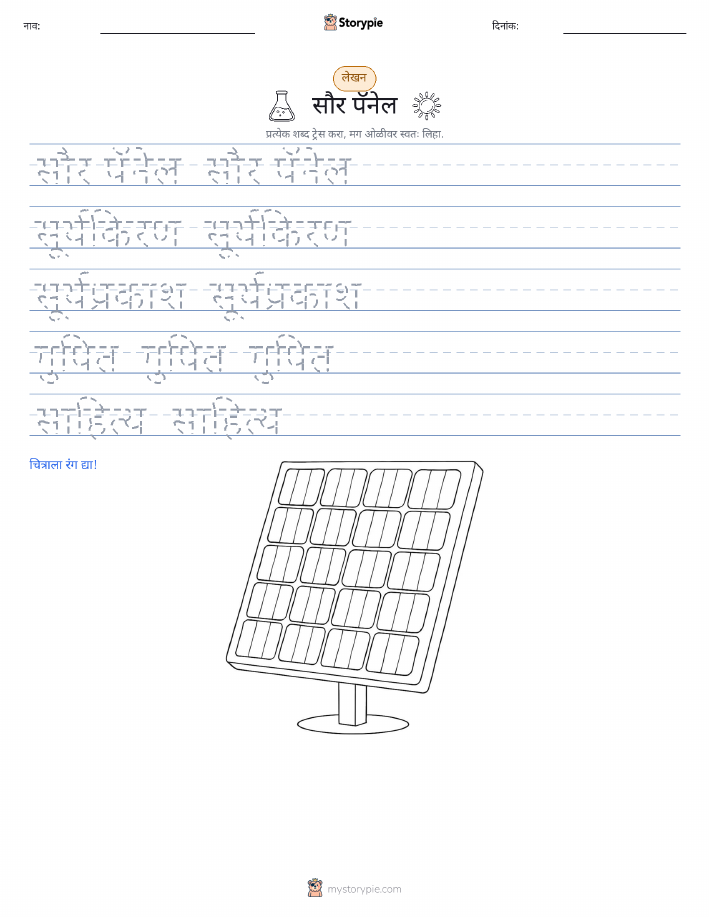 नाव:
Storypie
दिनांक:
लेखन
सौर पॅनेल
प्रत्येक शब्द ट्रेस करा, मग ओळीवर स्वतः लिहा.
सौर पॅनेल सौर पॅनेल
सूर्यकिरण सूर्यकिरण
सूर्यप्रकाश सूर्यप्रकाश
गुपित गुपित गुपित
साहित्य साहित्य
चित्राला रंग द्या!
mystorypie.com